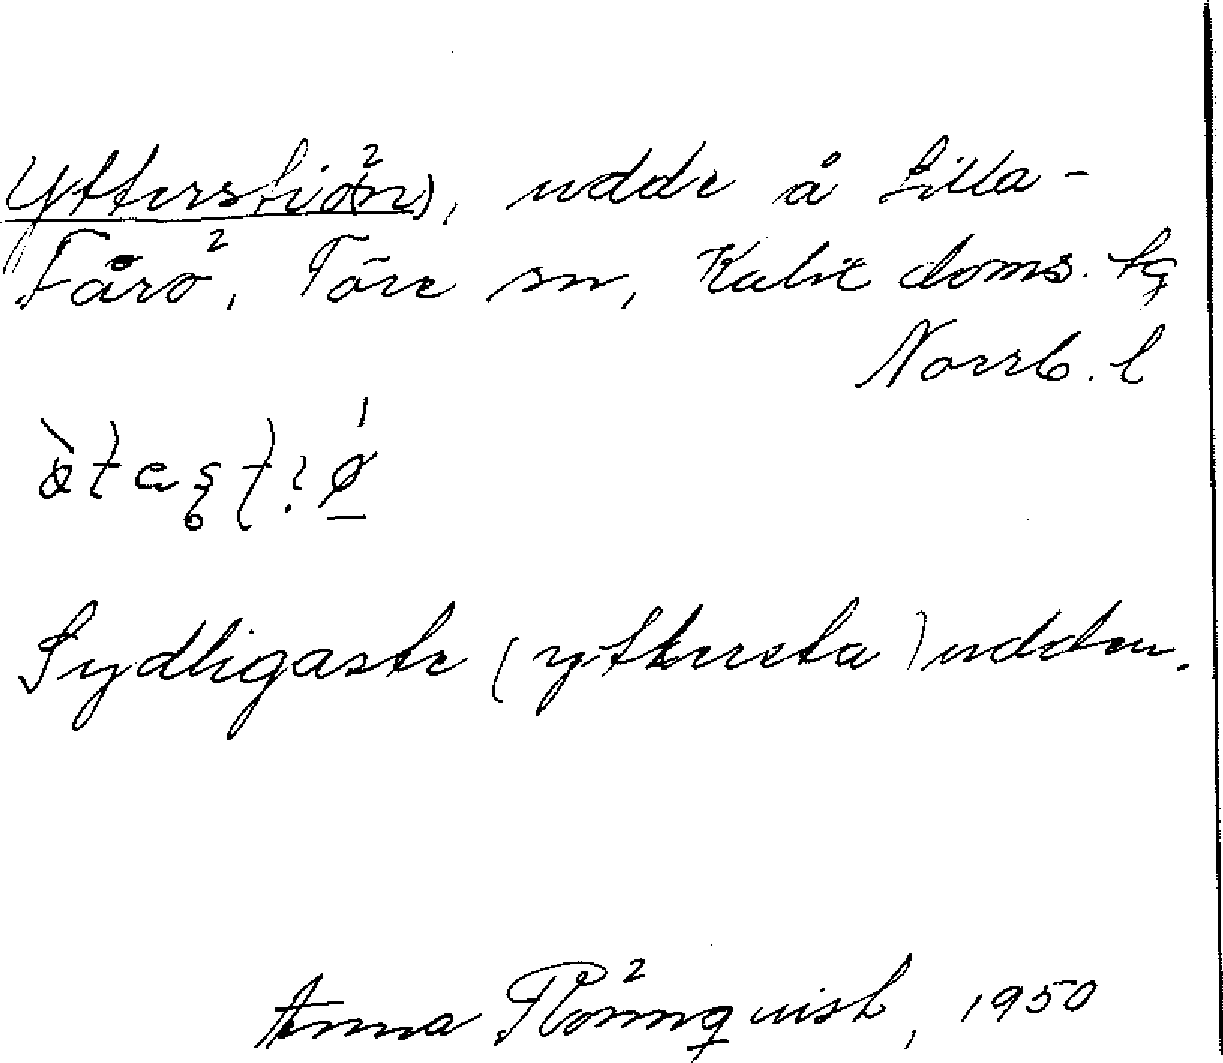 Ytterstiö(n), udde å Lilla-
Fårö, Töre sn, Kalix doms. tg
Norrb. l
Sydligaste (yttersta) udden.
Anna Rönnquist, 1950